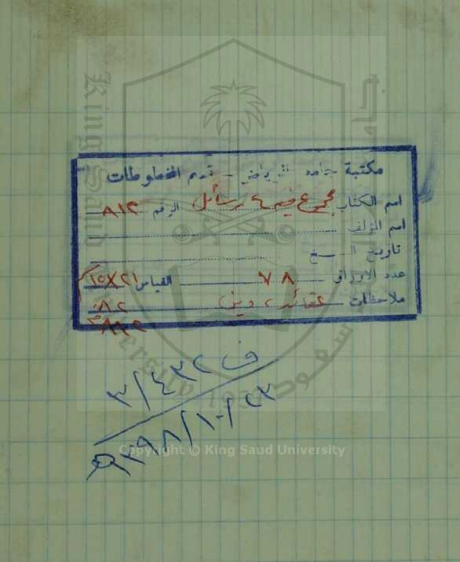 مكتبة جامعة الرياض - قسم المخطوطات
اسم الكتاب مجموع فيه ٤ رسائل الرقم ٨١٢
اسم المؤلف
تاريخ النسخ
عدد الأوراق ٧٨ القياس ٢١×١٥
ملاحظات عقائد،
ف ٣/٤٣٢
٢٣/١٠/١٣٩٨هـ
Copyright © King Saud University